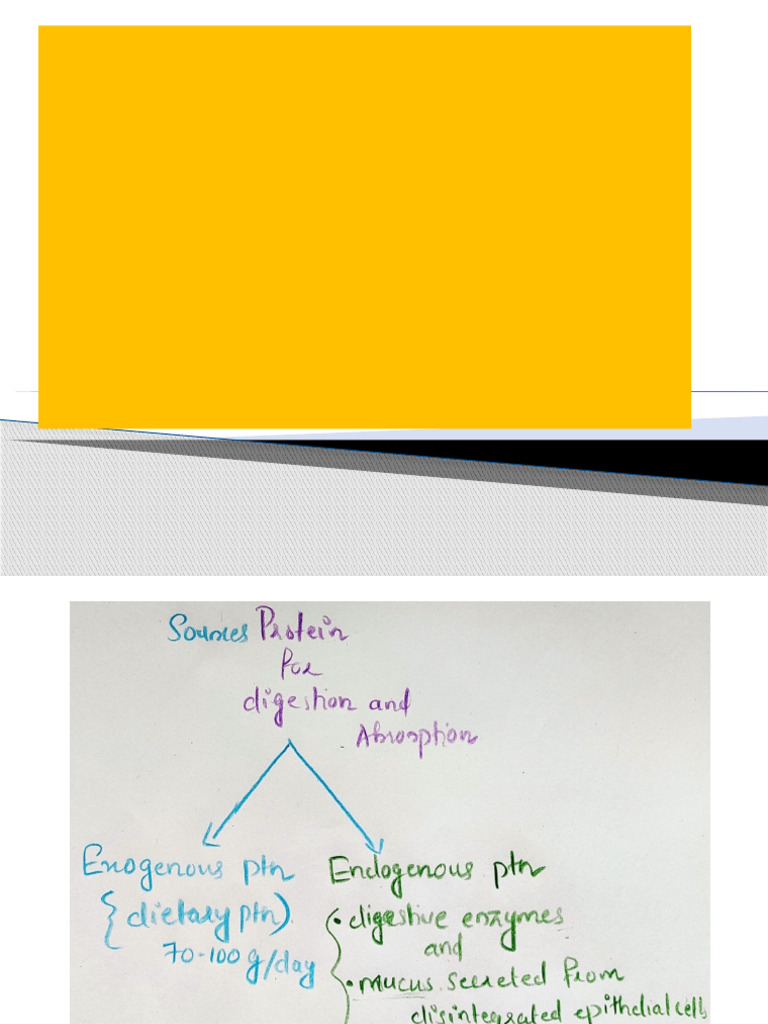 Sources Protein
for
digestion and
Absroption
Exogenous ptn
{dietary ptn)
70-100 g/day
Endogenous ptn
• digestive enzymes
and
• mucus secreted from
disintegrated epithelial cells